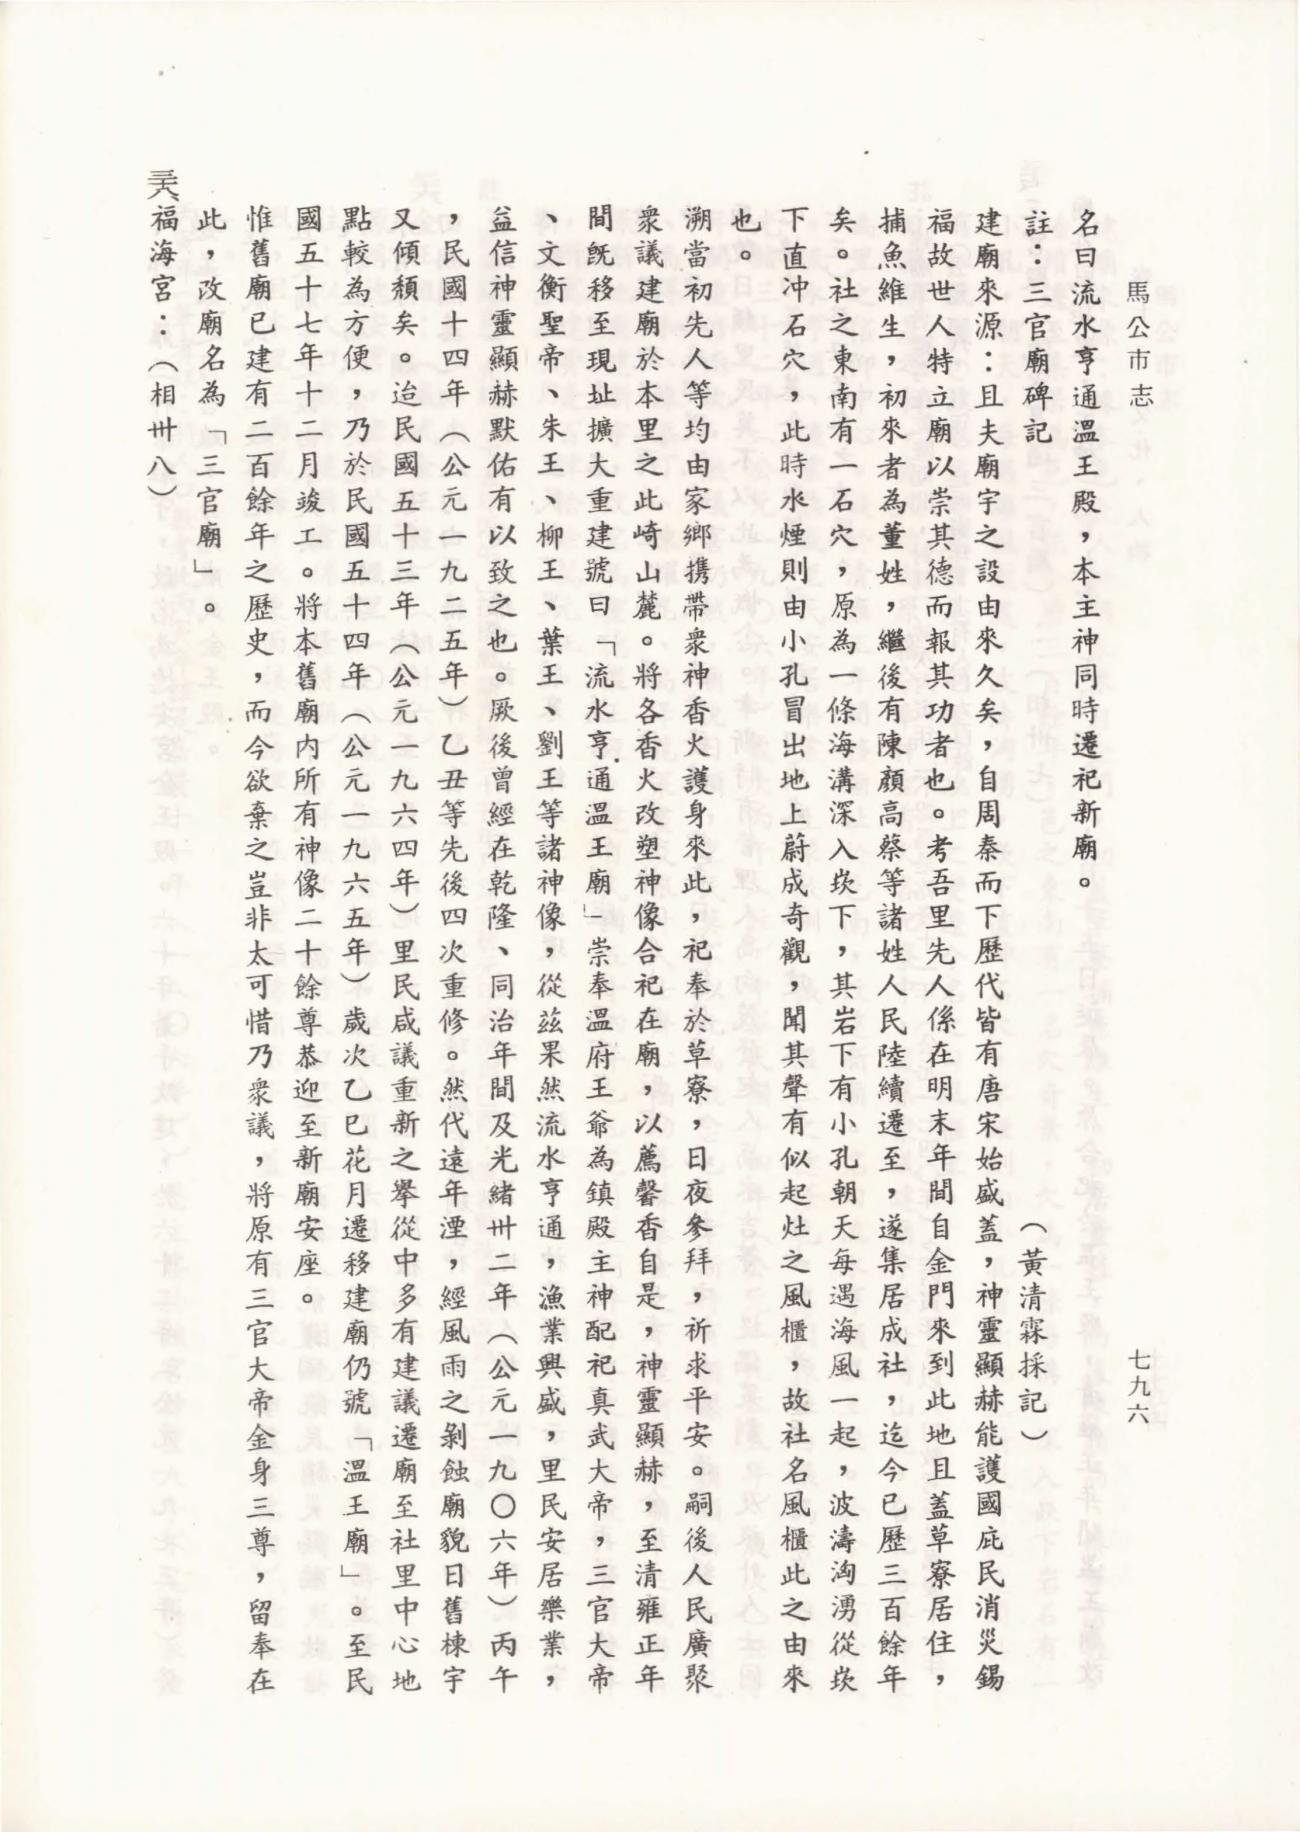 馬公市志
七九六
名曰流水亨通溫王殿，本主神同時遷祀新廟。
註：三官廟碑記
（黃清霖採記）
建廟來源：且夫廟宇之設由來久矣，自周秦而下歷代皆有唐宋始盛蓋，神靈顯赫能護國庇民消災錫
福故世人特立廟以崇其德而報其功者也。考吾里先人係在明末年間自金門來到此地且蓋草寮居住，
捕魚維生，初來者為董姓，繼後有陳顏高蔡等諸姓人民陸續遷至，遂集居成社，迄今已歷三百餘年
矣。社之東南有一石穴，原為一條海溝深入崁下，其岩下有小孔朝天每遇海風一起，波濤洶湧從崁
下直冲石穴，此時水煙則由小孔冒出地上蔚成奇觀，聞其聲有似起灶之風櫃，故社名風櫃此之由來
也。
溯當初先人等均由家鄉携帶衆神香火護身來此，祀奉於草寮，日夜參拜，祈求平安。嗣後人民廣聚
衆議建廟於本里之此崎山麓。將各香火改塑神像合祀在廟，以薦馨香自是，神靈顯赫，至清雍正年
間旣移至現址擴大重建號曰「流水亨通溫王廟」崇奉溫府王爺為鎮殿主神配祀真武大帝，三官大帝
、文衡聖帝、朱王、柳王、葉王、劉王等諸神像，從茲果然流水亨通，漁業興盛，里民安居樂業，
益信神靈顯赫默佑有以致之也。厥後曾經在乾隆、同治年間及光緒卅二年（公元一九〇六年）丙午
，民國十四年（公元一九二五年）乙丑等先後四次重修。然代遠年湮，經風雨之剝蝕廟貌日舊棟宇
又傾頹矣。迨民國五十三年（公元一九六四年）里民咸議重新之舉從中多有建議遷廟至社里中心地
點較為方便，乃於民國五十四年（公元一九六五年）歲次乙巳花月遷移建廟仍號「溫王廟」。至民
國五十七年十二月竣工。將本舊廟内所有神像二十餘尊恭迎至新廟安座。
惟舊廟已建有二百餘年之歷史，而今欲棄之豈非太可惜乃衆議，將原有三官大帝金身三尊，留奉在
此，改廟名為「三官廟」。
福海宮：（相卅八）